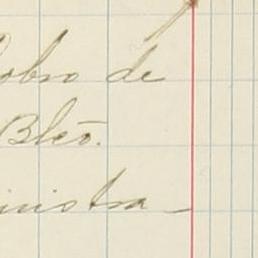 obro de
Bleo.
inistra-